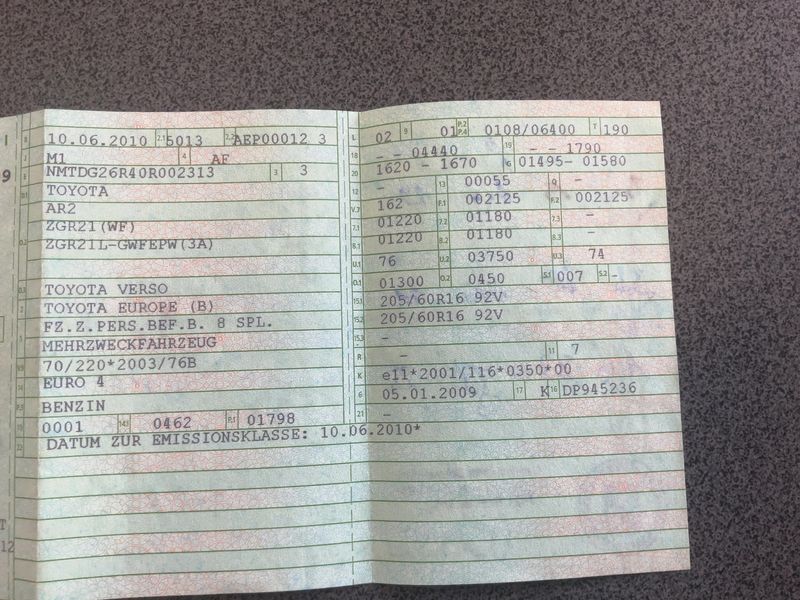 B 10.06.2010 2.1 5013 2.2 AEP00012 3
J M1 4 AF
E NMTDG26R40R002313 3 3
D.1 TOYOTA
AR2
D.2 ZGR21(WF)
ZGR21L-GWFEPW(3A)
D.3 TOYOTA VERSO
2 TOYOTA EUROPE (B)
5 FZ.Z.PERS.BEF.B. 8 SPL.
MEHRZWECKFAHRZEUG
V.9 70/220*2003/76B
14 EURO 4
P.3 BENZIN
10 0001 14.1 0462 P.1 01798
22 DATUM ZUR EMISSIONSKLASSE: 10.06.2010*
L 02 9 01 P.2 P.4 0108/06400 T 190
18 - - 04440 19 - - 1790
20 1620 - 1670 G 01495- 01580
12 - 13 00055 Q -
V.7 162 F.1 002125 F.2 002125
7.1 01220 7.2 01180 7.3 -
8.1 01220 8.2 01180 8.3 -
U.1 76 U.2 03750 U.3 74
O.1 01300 O.2 0450 S.1 007 S.2 -
15.1 205/60R16 92V
15.2 205/60R16 92V
15.3 -
R - 11 7
K e11*2001/116*0350*00
6 05.01.2009 17 K 16 DP945236
21 -
9
T
12